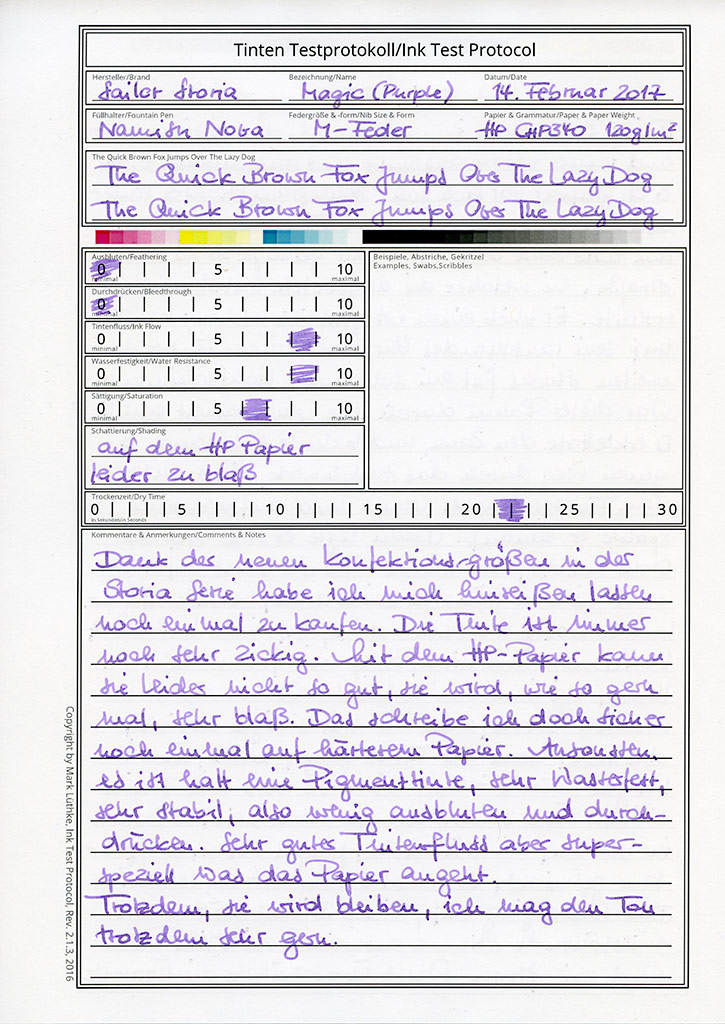 Tinten Testprotokoll/Ink Test Protocol
Hersteller/Brand Bezeichnung/Name Datum/Date
Sailor Storia Magic (Purple) 14. Februar 2017
Füllhalter/Fountain Pen Federgröße & -form/Nib Size & Form Papier & Grammatur/Paper & Paper Weight
Namisu Nova M-Feder HP CHP340 120g/m²
The Quick Brown Fox Jumps Over The Lazy Dog
The Quick Brown Fox Jumps Over The Lazy Dog
The Quick Brown Fox Jumps Over The Lazy Dog
Ausbluten/Feathering
0 5 10
minimal maximal
Beispiele, Abstriche, Gekritzel
Examples, Swabs,Scribbles
Durchdrücken/Bleedthrough
0 5 10
minimal maximal
Tintenfluss/Ink Flow
0 5 10
minimal maximal
Wasserfestigkeit/Water Resistance
0 5 10
minimal maximal
Sättigung/Saturation
0 5 10
minimal maximal
Schattierung/Shading
auf dem HP Papier
leider zu blaß
Trockenzeit/Dry Time
0 5 10 15 20 25 30
in Sekunden/in Seconds
Kommentare & Anmerkungen/Comments & Notes
Dank der neuen Konfektionsgrößen in der
Storia Serie habe ich mich hinreißen lassen
noch einmal zu kaufen. Die Tinte ist immer
noch sehr zickig. Mit dem HP-Papier kann
sie leider nicht so gut, sie wird, wie so gern
mal, sehr blaß. Das schreibe ich doch sicher
noch einmal auf härterem Papier. Ansonsten,
es ist halt eine Pigmenttinte, sehr Wasserfest,
sehr stabil, also wenig ausbluten und durch-
drücken. Sehr guter Tintenfluss aber super-
speziell was das Papier angeht.
Trotzdem, sie wird bleiben, ich mag den Ton
trotzdem sehr gern.
Copyright by Mark Lüthke, Ink Test Protocol, Rev. 2.1.3, 2016